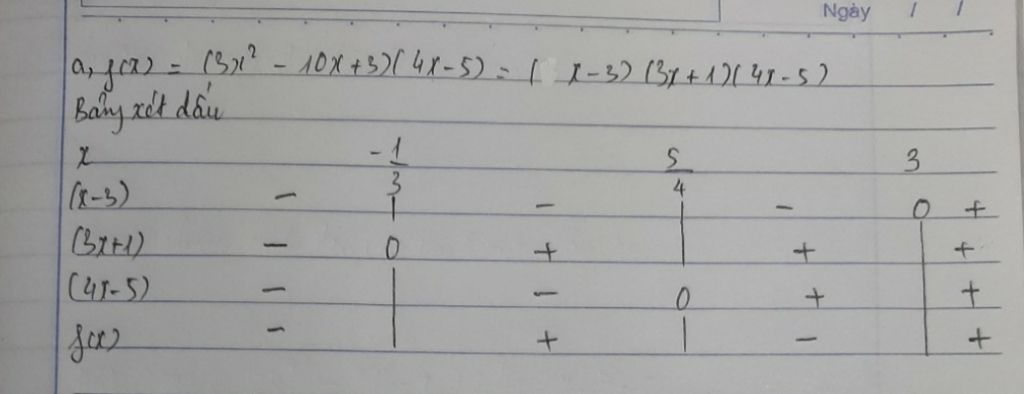 Ngày / /
a, f(x) = (3x² - 10x+3)(4x-5) = ( x-3) (3x+1)(4x-5)
Bảng xét dấu
x -1/3 5/4 3
(x-3) - | - | - 0 +
(3x+1) - 0 + | + | +
(4x-5) - | - 0 + | +
f(x) - | + | - | +